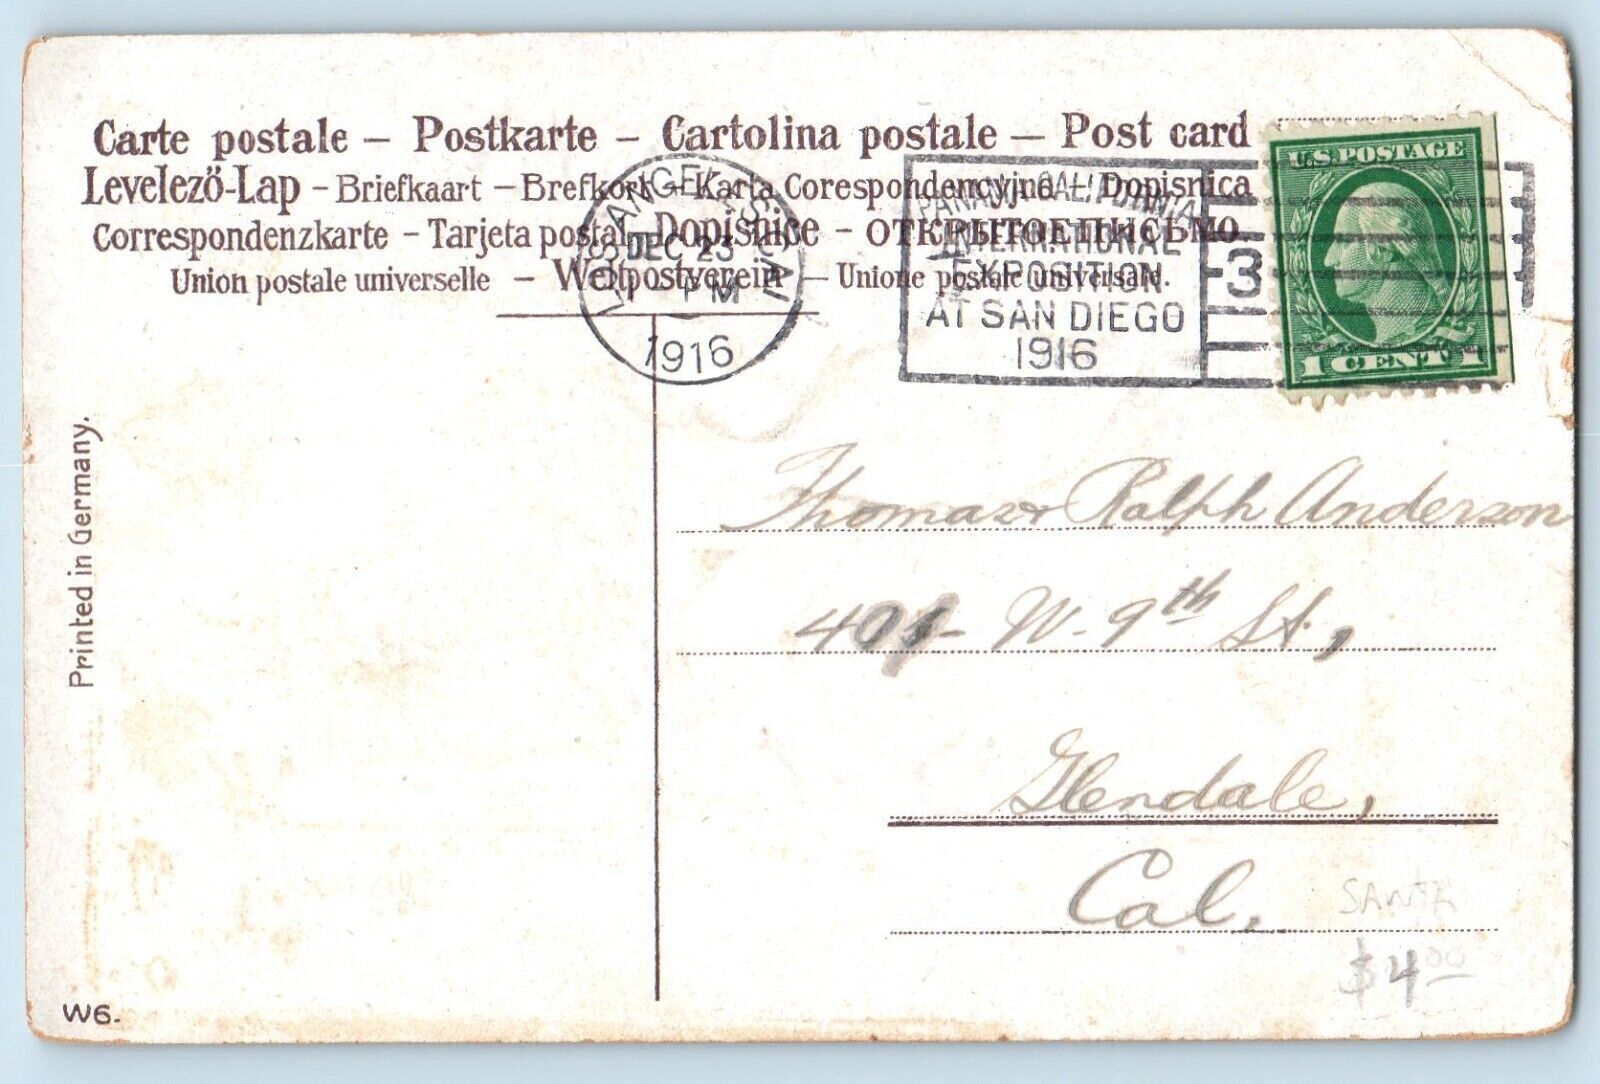 Carte postale – Postkarte – Cartolina postale – Post card
Levelező-Lap – Briefkaart – Brefkort – Karta Corespondencyjna – Dopisnica
Correspondenzkarte – Tarjeta postal – Dopisnice – ОТКРЫТОЕ ПИСЬМО
Union postale universelle – Weltpostverein – Unione postale universale.
LOS ANGELES CAL.
DEC 23
PM
1916
PANAMA-CALIFORNIA
INTERNATIONAL
EXPOSITION
AT SAN DIEGO
1916
3
U.S. POSTAGE
1 CENT 1
Printed in Germany.
Thomas Ralph Anderson
401– W. 9th St.,
Glendale,
Cal.
SANTA
$4.00
W6.